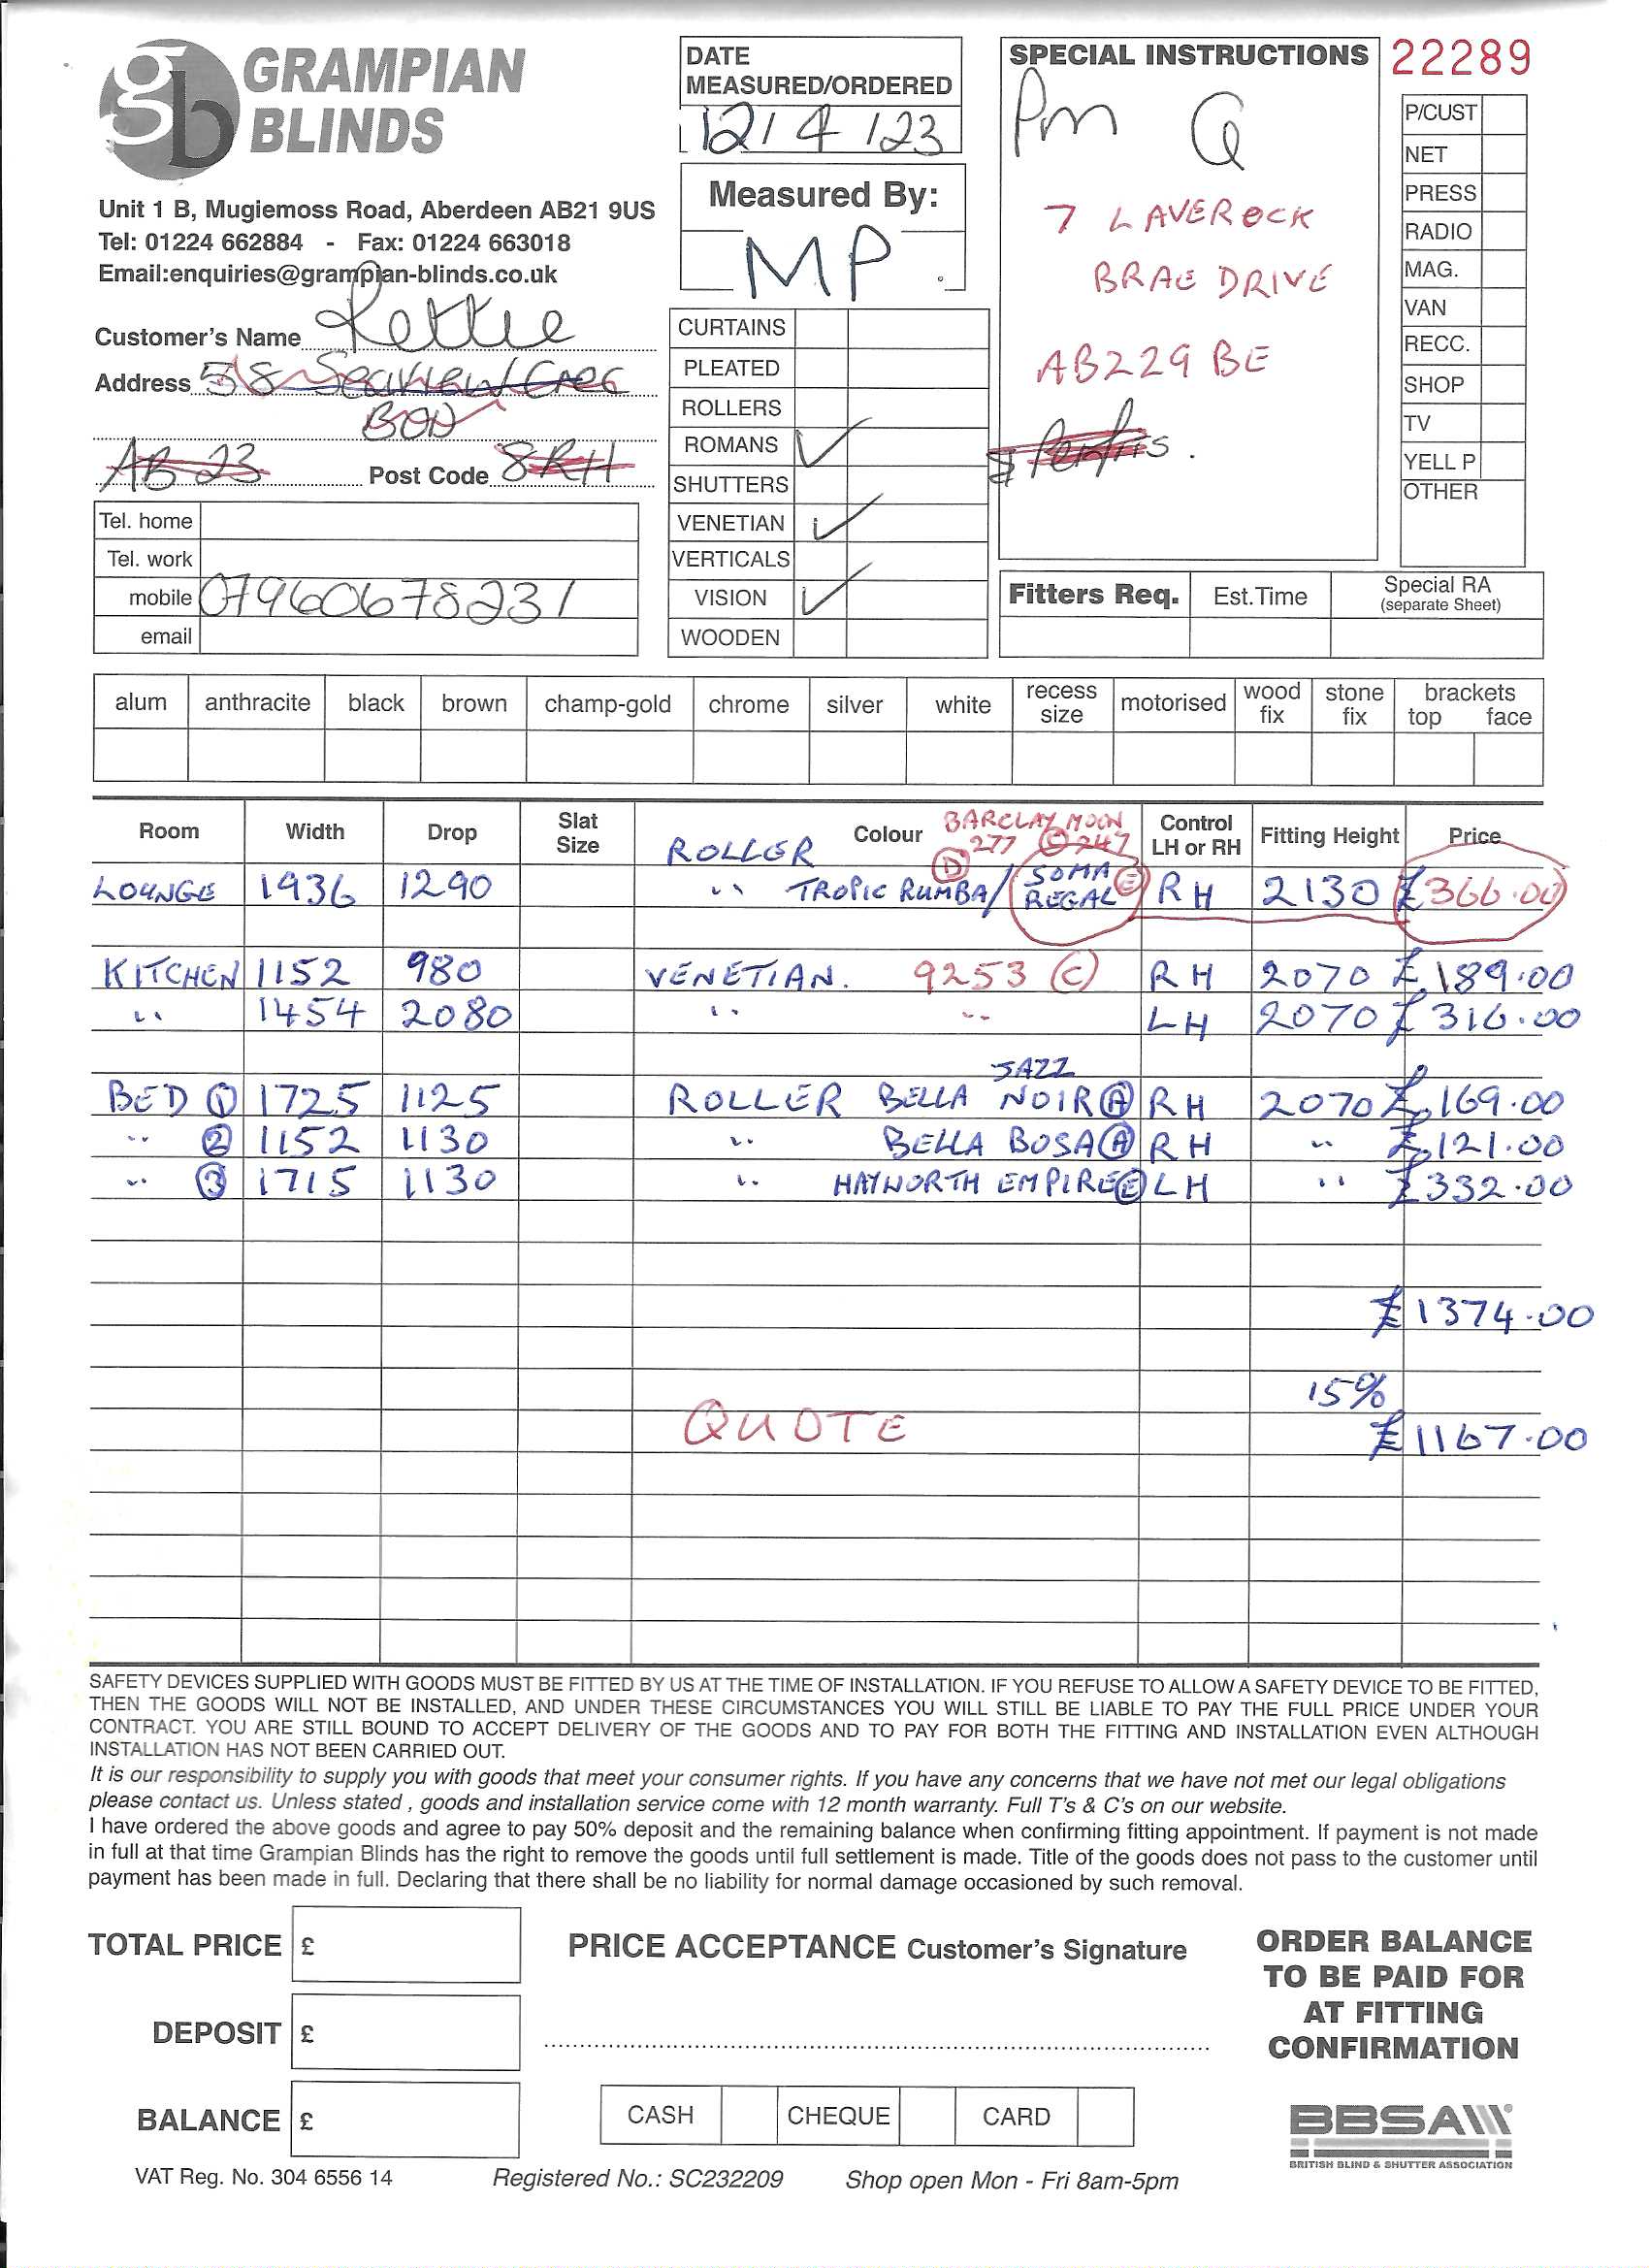 GRAMPIAN
BLINDS
Unit 1 B, Mugiemoss Road, Aberdeen AB21 9US
Tel: 01224 662884 - Fax: 01224 663018
Email:enquiries@grampian-blinds.co.uk
Customer's Name Rettie
Address 58 Seaview Cres
BOD
AB 23 Post Code 8RH
Tel. home
Tel. work
mobile 07960678231
email
DATE
MEASURED/ORDERED
12/4/23
Measured By:
MP.
CURTAINS
PLEATED
ROLLERS
ROMANS ✓
SHUTTERS
VENETIAN ✓
VERTICALS
VISION ✓
WOODEN
SPECIAL INSTRUCTIONS
Pm Q
7 LAVEROCK
BRAE DRIVE
AB22 9BE
22289
P/CUST
NET
PRESS
RADIO
MAG.
VAN
RECC.
SHOP
TV
YELL P
OTHER
Fitters Req. Est.Time Special RA
(separate Sheet)
alum anthracite black brown champ-gold chrome silver white recess size motorised wood fix stone fix brackets top face
Room Width Drop Slat Size Colour Control LH or RH Fitting Height Price
BARCLAY MOON
D 277 C 247
LOUNGE 1936 1290 ROLLER " TROPIC RUMBA/ SOMA REGAL E RH 2130 £366.00
KITCHEN 1152 980 VENETIAN. 9253 C RH 2070 £189.00
" 1454 2080 " " LH 2070 £316.00
JAZZ
BED 1 1725 1125 ROLLER BELLA NOIR A RH 2070 £169.00
" 2 1152 1130 " BELLA BOSA A RH " £121.00
" 3 1715 1130 " HAYWORTH EMPIRE E LH " £332.00
£1374.00
15%
QUOTE £1167.00
SAFETY DEVICES SUPPLIED WITH GOODS MUST BE FITTED BY US AT THE TIME OF INSTALLATION. IF YOU REFUSE TO ALLOW A SAFETY DEVICE TO BE FITTED,
THEN THE GOODS WILL NOT BE INSTALLED, AND UNDER THESE CIRCUMSTANCES YOU WILL STILL BE LIABLE TO PAY THE FULL PRICE UNDER YOUR
CONTRACT. YOU ARE STILL BOUND TO ACCEPT DELIVERY OF THE GOODS AND TO PAY FOR BOTH THE FITTING AND INSTALLATION EVEN ALTHOUGH
INSTALLATION HAS NOT BEEN CARRIED OUT.
It is our responsibility to supply you with goods that meet your consumer rights. If you have any concerns that we have not met our legal obligations
please contact us. Unless stated , goods and installation service come with 12 month warranty. Full T's & C's on our website.
I have ordered the above goods and agree to pay 50% deposit and the remaining balance when confirming fitting appointment. If payment is not made
in full at that time Grampian Blinds has the right to remove the goods until full settlement is made. Title of the goods does not pass to the customer until
payment has been made in full. Declaring that there shall be no liability for normal damage occasioned by such removal.
TOTAL PRICE £
DEPOSIT £
BALANCE £
PRICE ACCEPTANCE Customer's Signature
CASH CHEQUE CARD
ORDER BALANCE
TO BE PAID FOR
AT FITTING
CONFIRMATION
BBSA
BRITISH BLIND & SHUTTER ASSOCIATION
VAT Reg. No. 304 6556 14 Registered No.: SC232209 Shop open Mon - Fri 8am-5pm